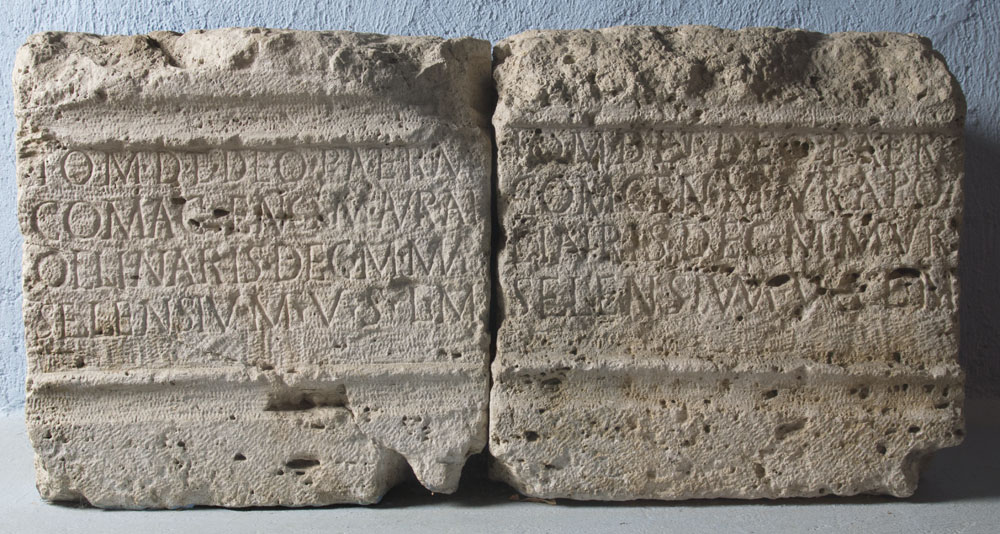 I O M D D DEO PAERN
COMAGENO M AVR AP
OLLINARIS DEC M MV
SELENSIVM V S L M
I O M D D DEO PAER
COMGEN M AVR APOL
LINARIS DEC M MVR
SELENSIVM V S L M